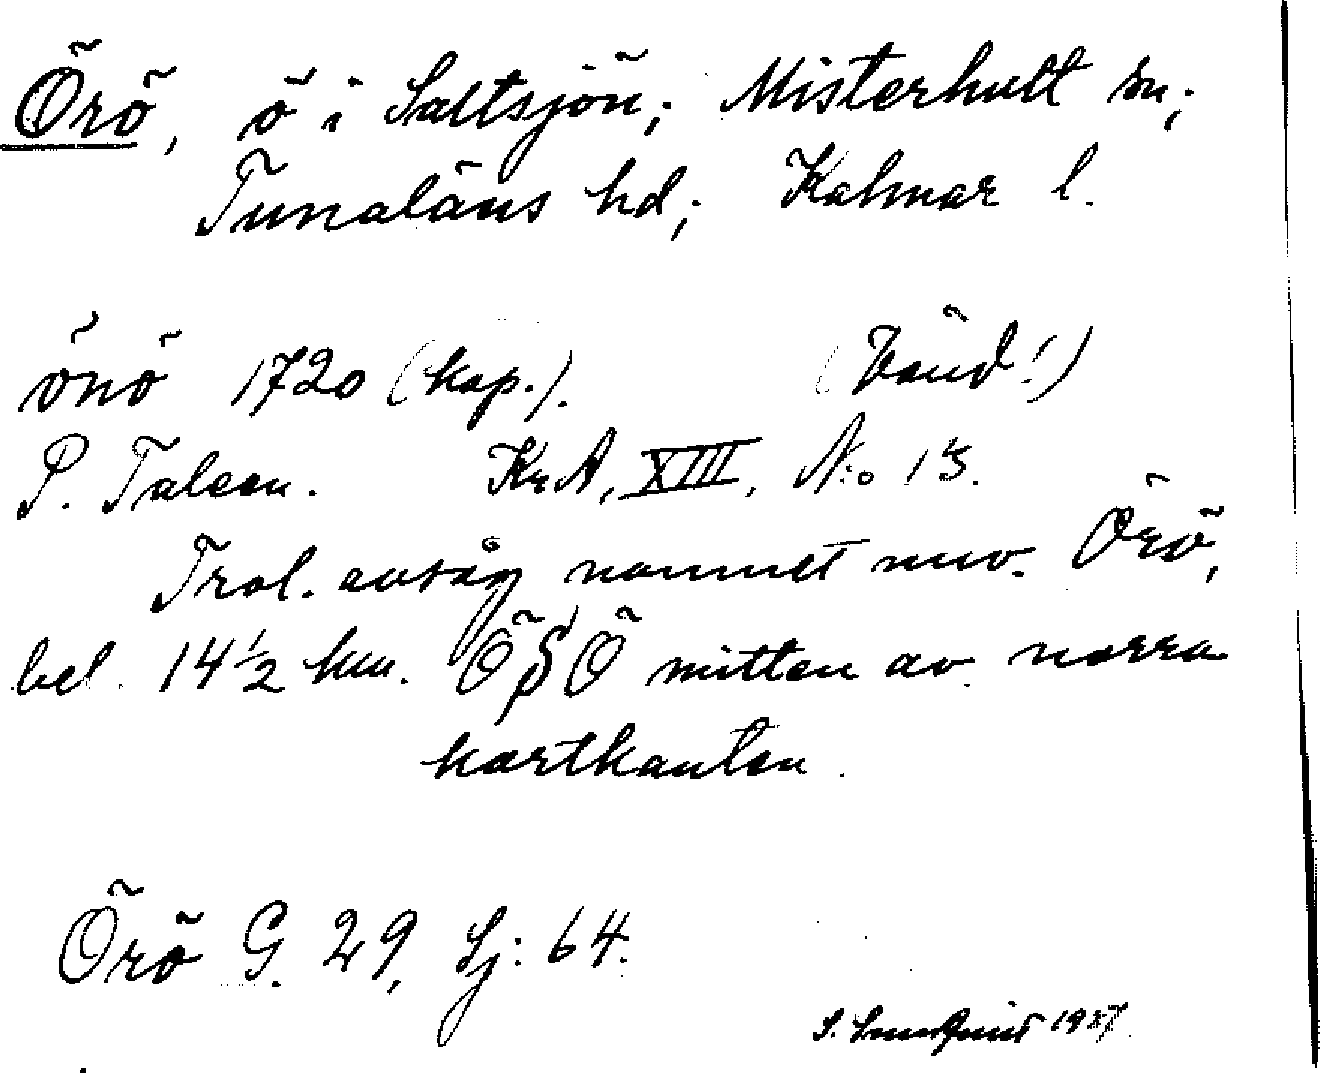 Örö, ö i Saltsjön; Misterhult sn;
Tunaläns hd; Kalmar l.
önö 1720 (kop.). (Vänd!)
P. Talcen. KrA, XIII, N:o 13.
Trol. avsåg namnet nuv. Örö,
bel. 14½ km. ÖSÖ mitten av norra
kartkanten.
Örö G. 29, Sj: 64.
S. 1937